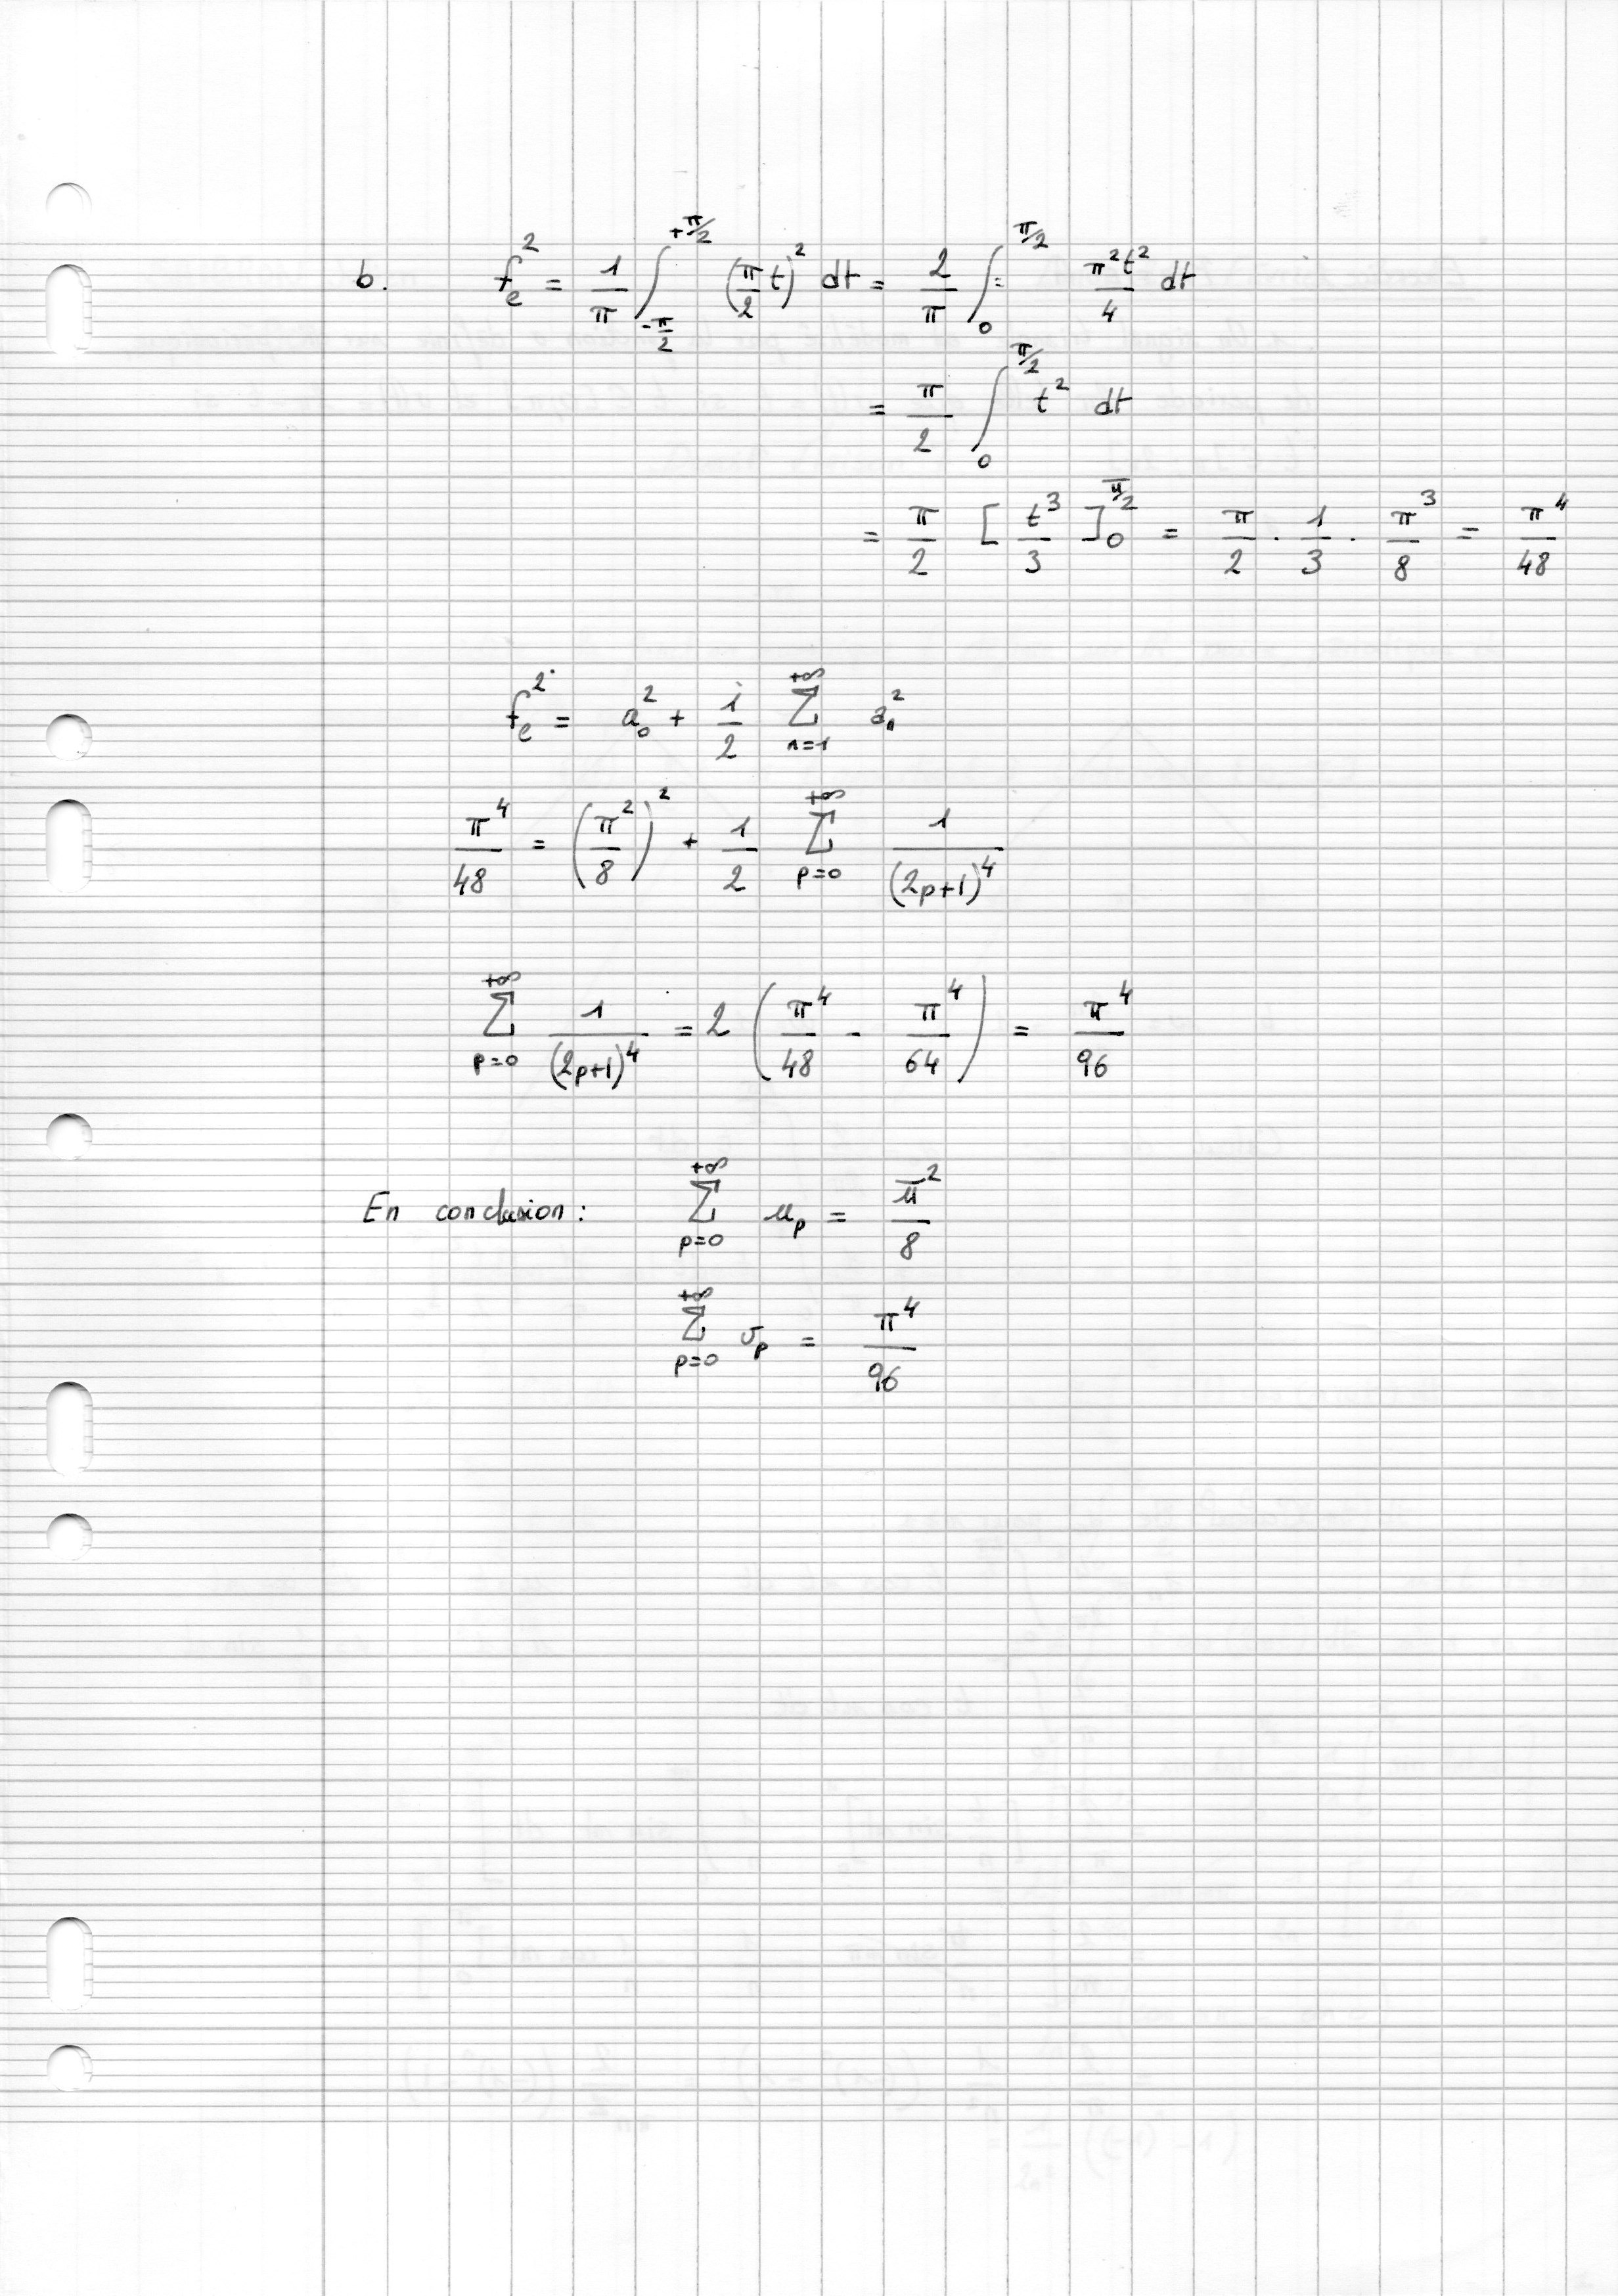 b. f_e^2 = 1/π ∫_{-π/2}^{+π/2} (π/2 t)^2 dt = 2/π ∫_0^{π/2} π^2 t^2/4 dt
= π/2 ∫_0^{π/2} t^2 dt
= π/2 [t^3/3]_0^{π/2} = π/2 · 1/3 · π^3/8 = π^4/48
f_e^2 = a_0^2 + 1/2 Σ_{n=1}^{+∞} a_n^2
π^4/48 = (π^2/8)^2 + 1/2 Σ_{p=0}^{+∞} 1/(2p+1)^4
Σ_{p=0}^{+∞} 1/(2p+1)^4 = 2 (π^4/48 - π^4/64) = π^4/96
En conclusion : Σ_{p=0}^{+∞} u_p = π^2/8
Σ_{p=0}^{+∞} v_p = π^4/96